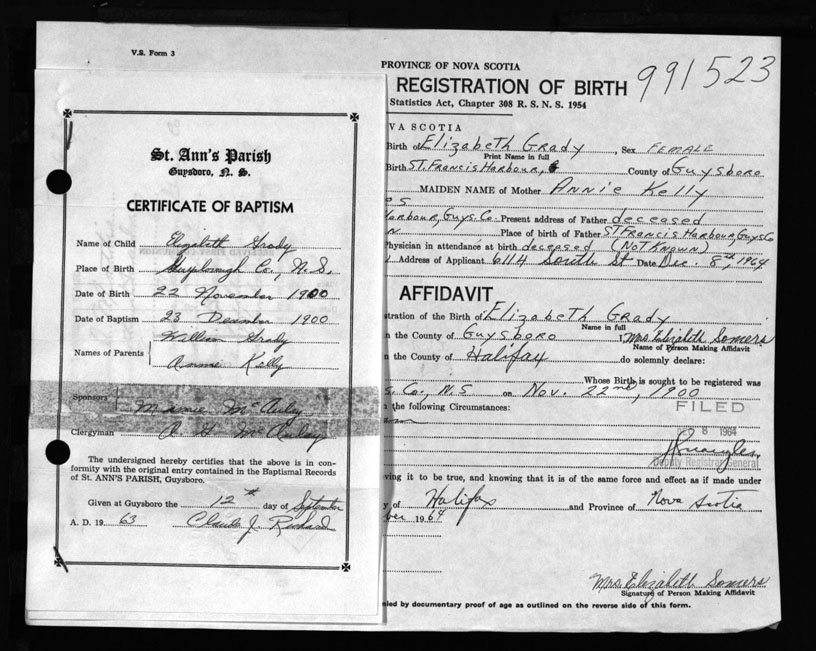 V.S. Form 3
PROVINCE OF NOVA SCOTIA
REGISTRATION OF BIRTH
991523
Statistics Act, Chapter 308 R. S. N. S. 1954
VA SCOTIA
Birth of Elizabeth Grady, Sex FEMALE
Print Name in full
Birth ST. Francis Harbour, County of Guysboro
MAIDEN NAME of Mother Annie Kelly
Harbour, Guys. Co. Present address of Father deceased
Place of birth of Father ST. Francis Harbour, Guys Co
Physician in attendance at birth deceased (Not Known)
Address of Applicant 6114 South St Date Dec. 8th, 1964
AFFIDAVIT
stration of the Birth of Elizabeth Grady
Name in full
n the County of Guysboro I, Mrs. Elizabeth Somers
Name of Person Making Affidavit
n the County of Halifax do solemnly declare:
Whose Birth is sought to be registered was
s. Co., N.S on Nov. 22nd, 1900
the following Circumstances:
FILED
8 1964
Deputy Registrar General
ving it to be true, and knowing that it is of the same force and effect as if made under
y of Halifax and Province of Nova Scotia
ber 1964
Mrs. Elizabeth Somers
Signature of Person Making Affidavit
nied by documentary proof of age as outlined on the reverse side of this form.
St. Ann's Parish
Guysboro, N. S.
CERTIFICATE OF BAPTISM
Name of Child Elizabeth Grady
Place of Birth Guysborough Co., N.S.
Date of Birth 22 November 1900
Date of Baptism 23 December 1900
William Grady
Names of Parents
Annie Kelly
Sponsors Mamie McAulay
Clergyman McAulay
The undersigned hereby certifies that the above is in con-
formity with the original entry contained in the Baptismal Records
of St. ANN'S PARISH, Guysboro.
Given at Guysboro the 12th day of September
A. D. 19 63 Claude J. Richard